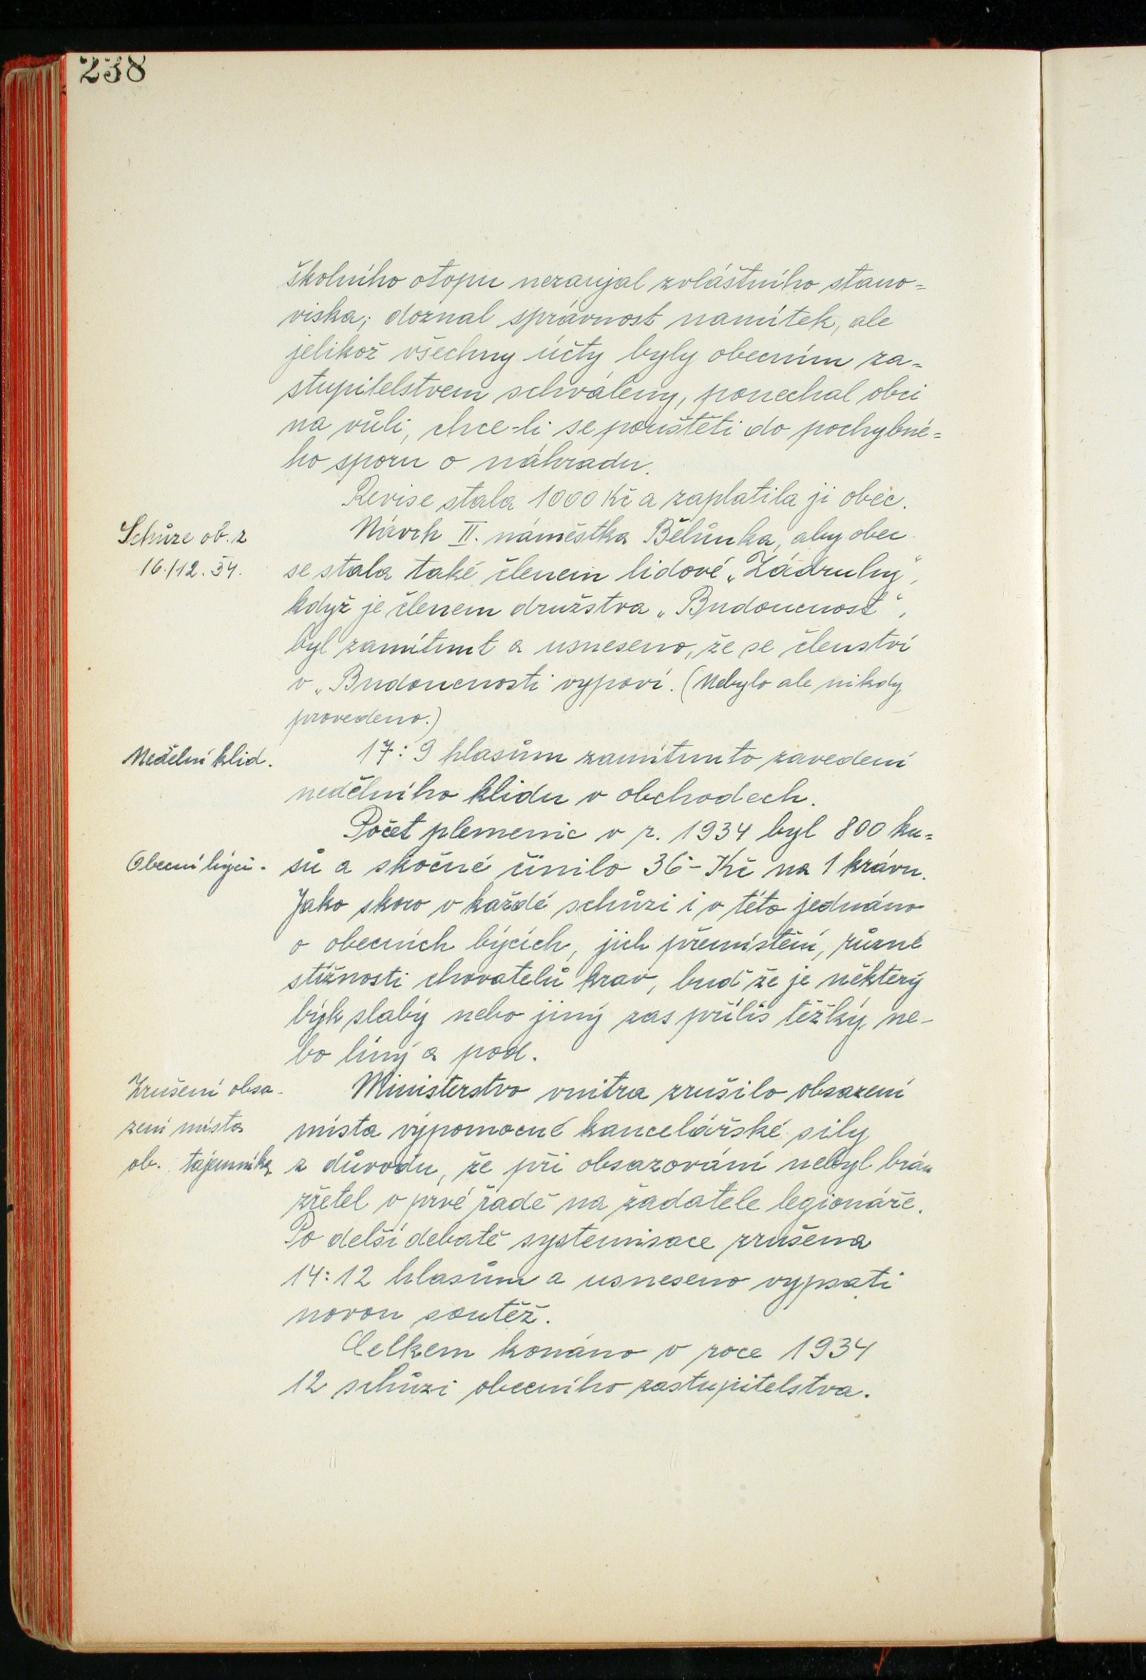 238
školního otopu nezaujal zvláštního stano=
viska; doznal správnost namítek, ale
jelikož všechny účty byly obecním za=
stupitelstvem schváleny, ponechal obci
na vůli, chce-li se pouštěti do pochybné=
ho sporu o náhradu.
Revise stála 1000 Kč a zaplatila ji obec.
Schůze ob. z
16./12. 34.
Návrh II. náměstka Bělůnka, aby obec
se stala také členem lidové „Zádruhy",
když je členem družstva „Budoucnost",
byl zamítnut a usneseno, že se členství
v „Budoucnosti vypoví. (Nebylo ale nikdy
provedeno.)
Nedělní klid.
17:9 hlasům zamítnuto zavedení
nedělního klidu v obchodech.
Počet plemenic v r. 1934 byl 800 ku=
Obecní býci.
sů a skočné činilo 36- Kč na 1 krávu.
Jako skoro v každé schůzi i v této jednáno
o obecních býcích, jich přemístění, různé
stížnosti chovatelů krav, buď že je některý
býk slabý nebo jiný zas příliš těžký, ne-
bo líný a pod.
Zrušení obsa-
zení místa
ob. tajemníka
Ministerstvo vnitra zrušilo obsazení
místa výpomocné kancelářské síly
z důvodu, že při obsazování nebyl brán
zřetel v prvé řadě na žadatele legionáře.
Po delší debatě systemisace zrušena
14:12 hlasům a usneseno vypsati
novou soutěž.
Celkem konáno v roce 1934
12 schůzí obecního zastupitelstva.